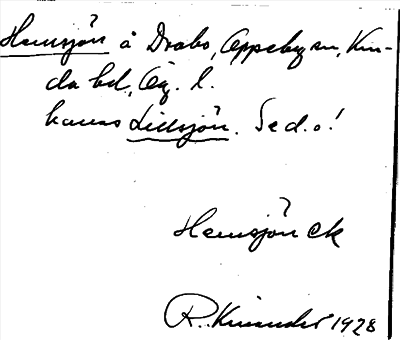 Hemsjön å Drabo, Oppeby sn, Kin-
da hd., Ög. l.
kallas Lillsjön. Se d.o!
Hemsjön ck
R. Kinander 1928